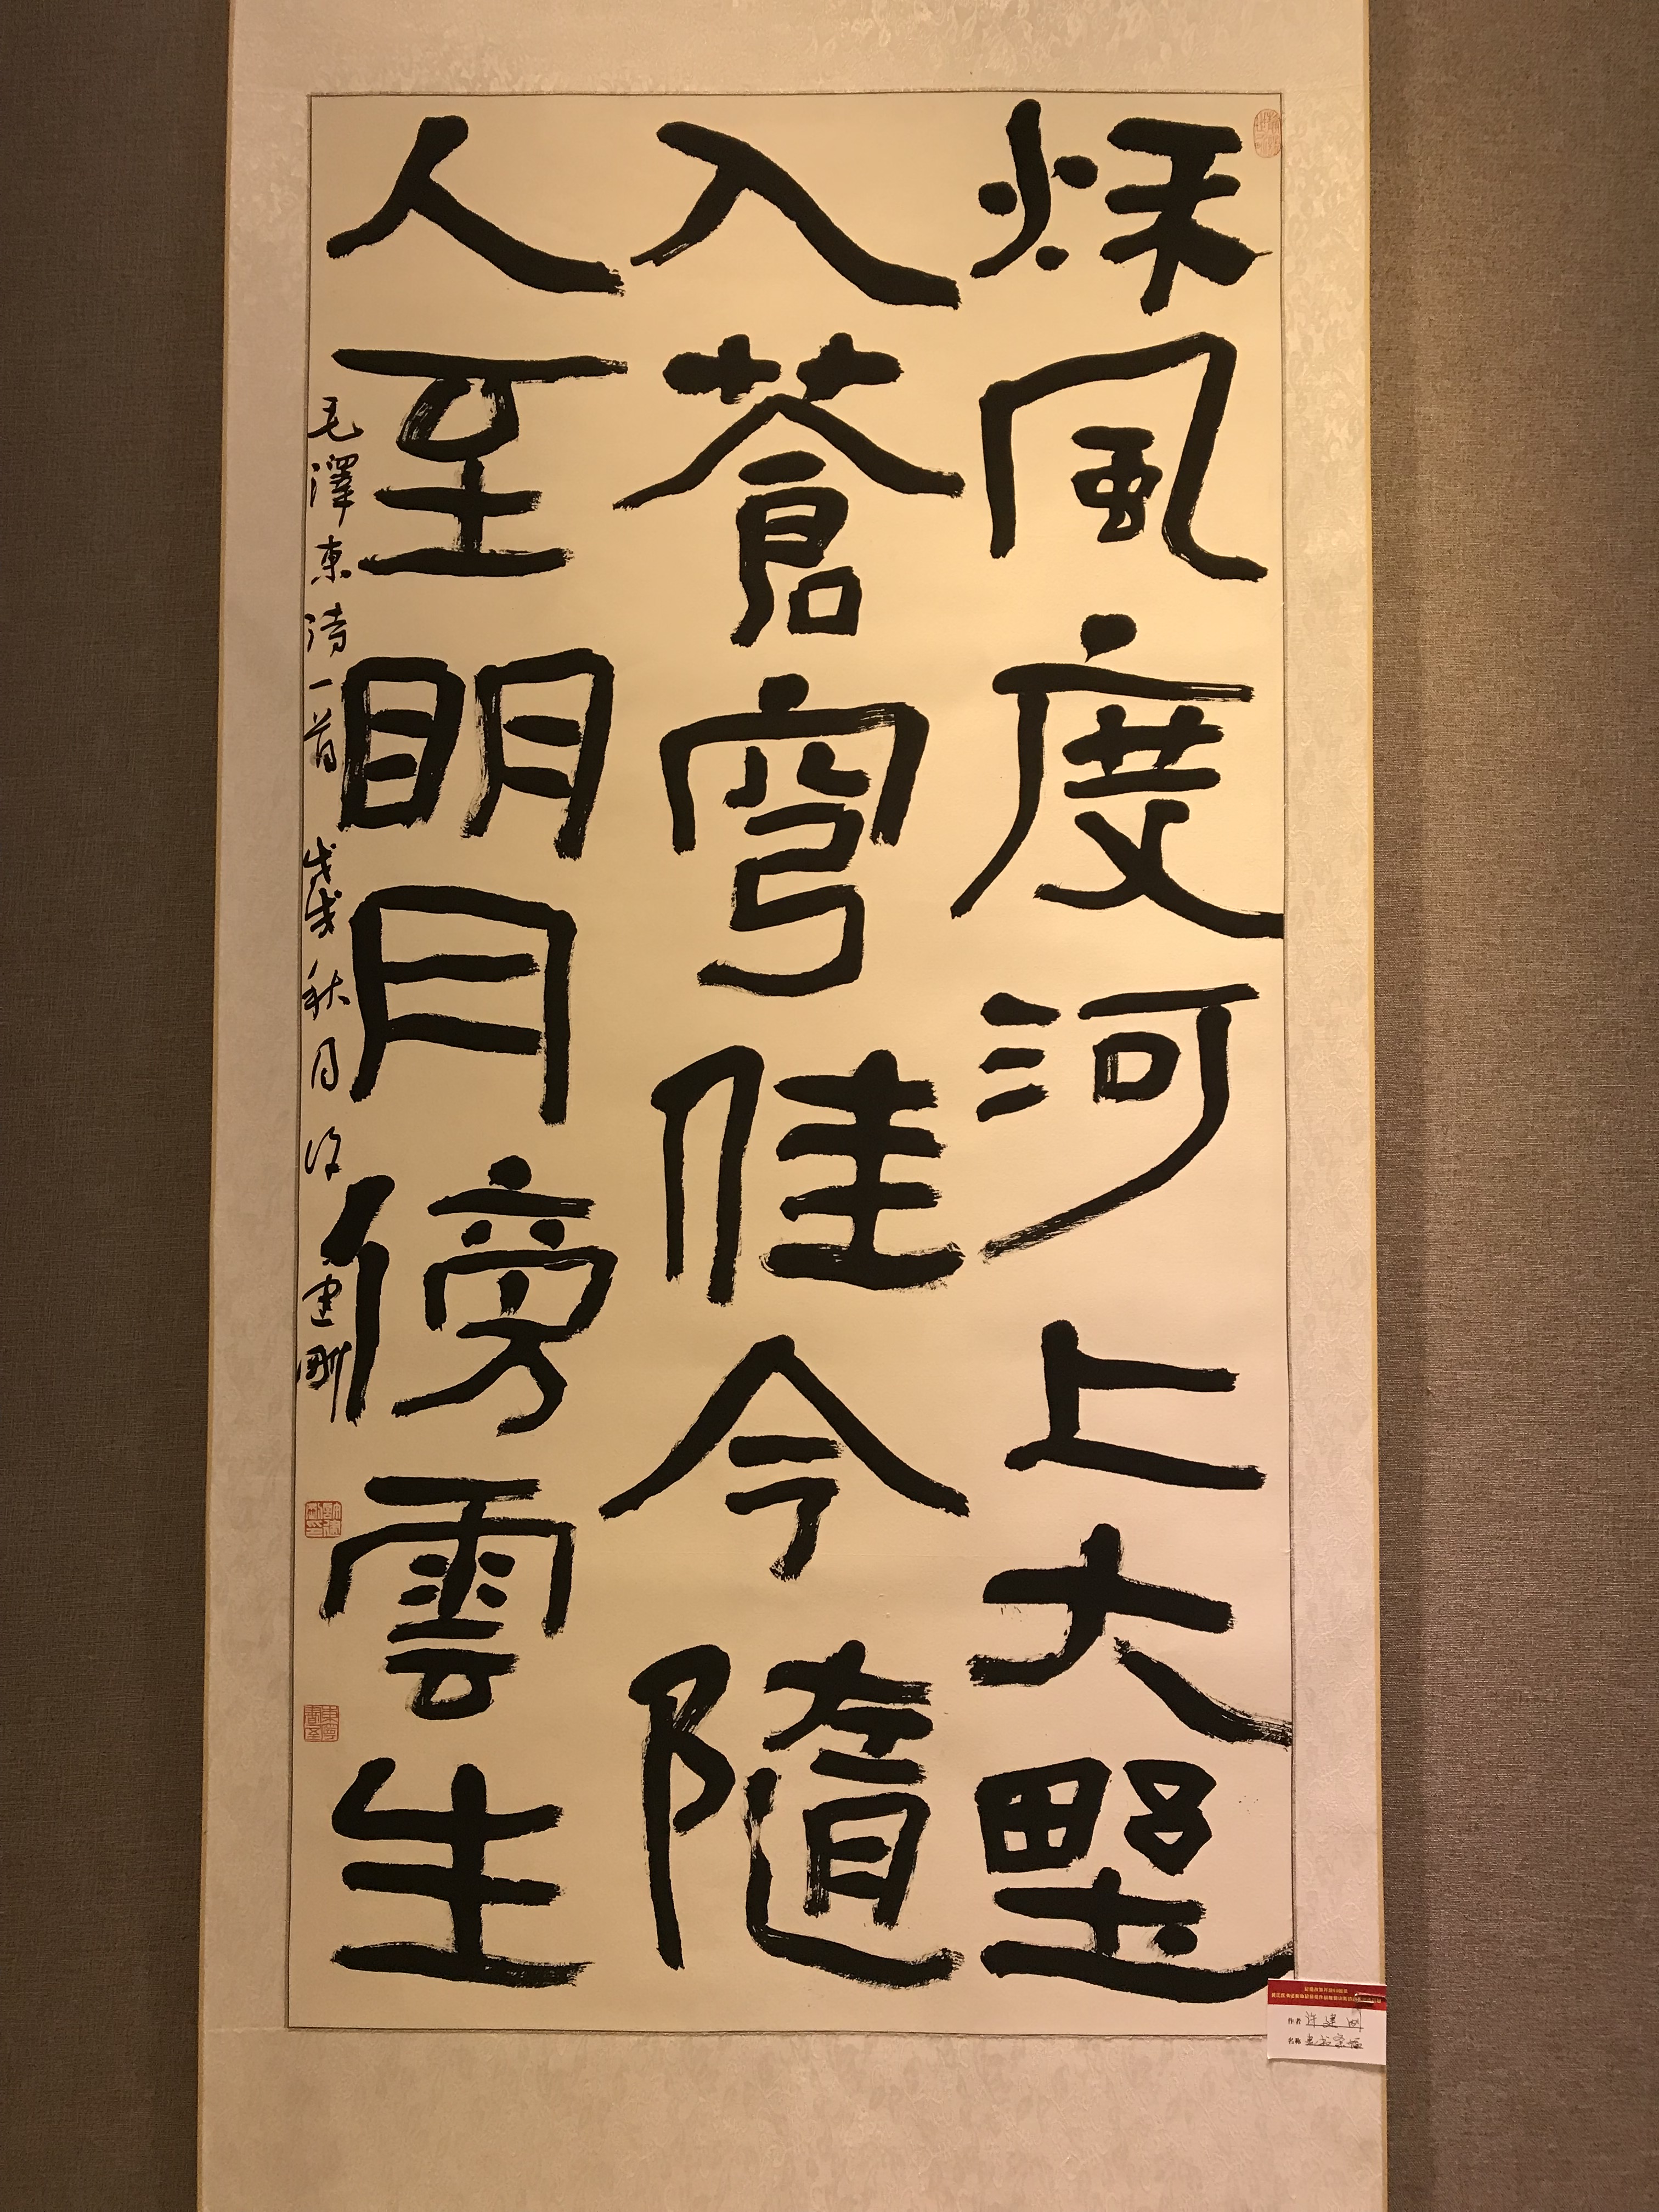 秌風度河上大野
入蒼穹佳令隨
人至眀月傍雲生
毛澤東詩一首 戊戌秋月 許建剛
作者 许建刚
名称